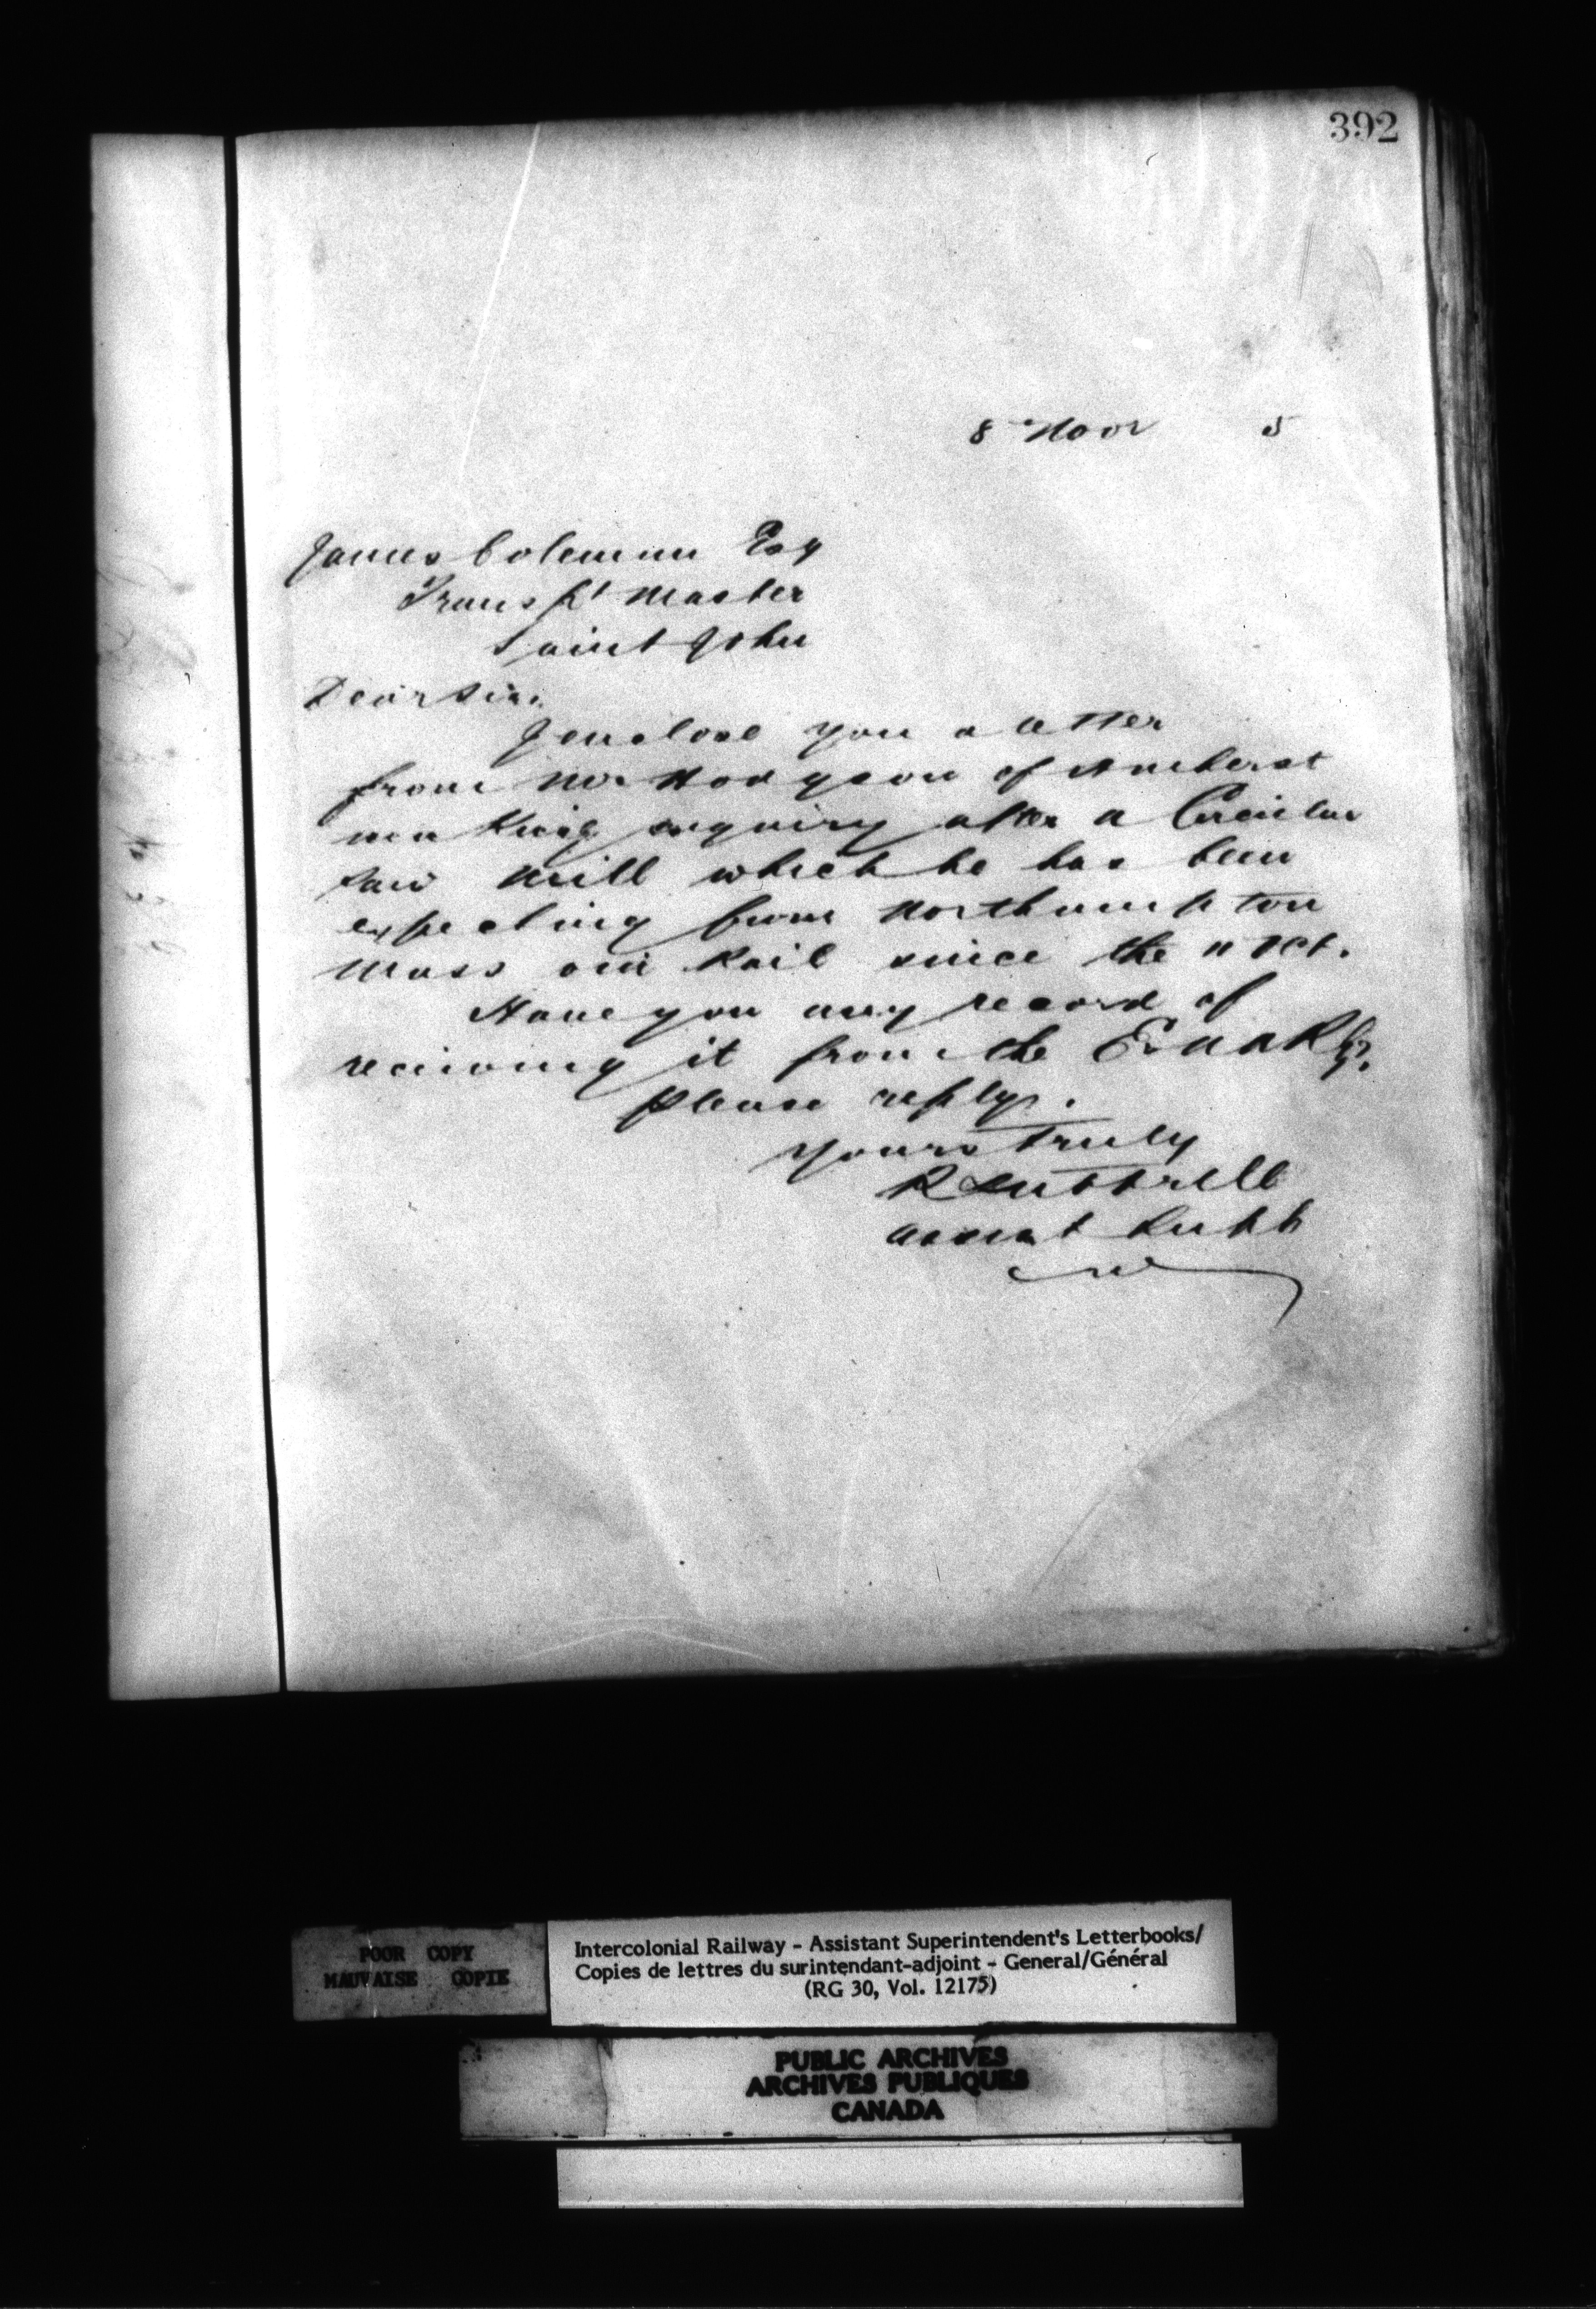 392
8 Nov 5
James Coleman Esq
Transpt Master
Saint John
Dear Sir,
I enclose you a letter
from Mr Hodgson of Amherst
making enquiry after a Circular
saw mill which he has been
expecting from Northampton
Mass via Rail since the 11 Oct.
Have you any record of
receiving it from the E & N A Rly.
Please reply.
Yours Truly
R Luttrell
Assist Supt
POOR COPY
MAUVAISE COPIE
Intercolonial Railway - Assistant Superintendent's Letterbooks/
Copies de lettres du surintendant-adjoint - General/Général
(RG 30, Vol. 12175)
PUBLIC ARCHIVES
ARCHIVES PUBLIQUES
CANADA